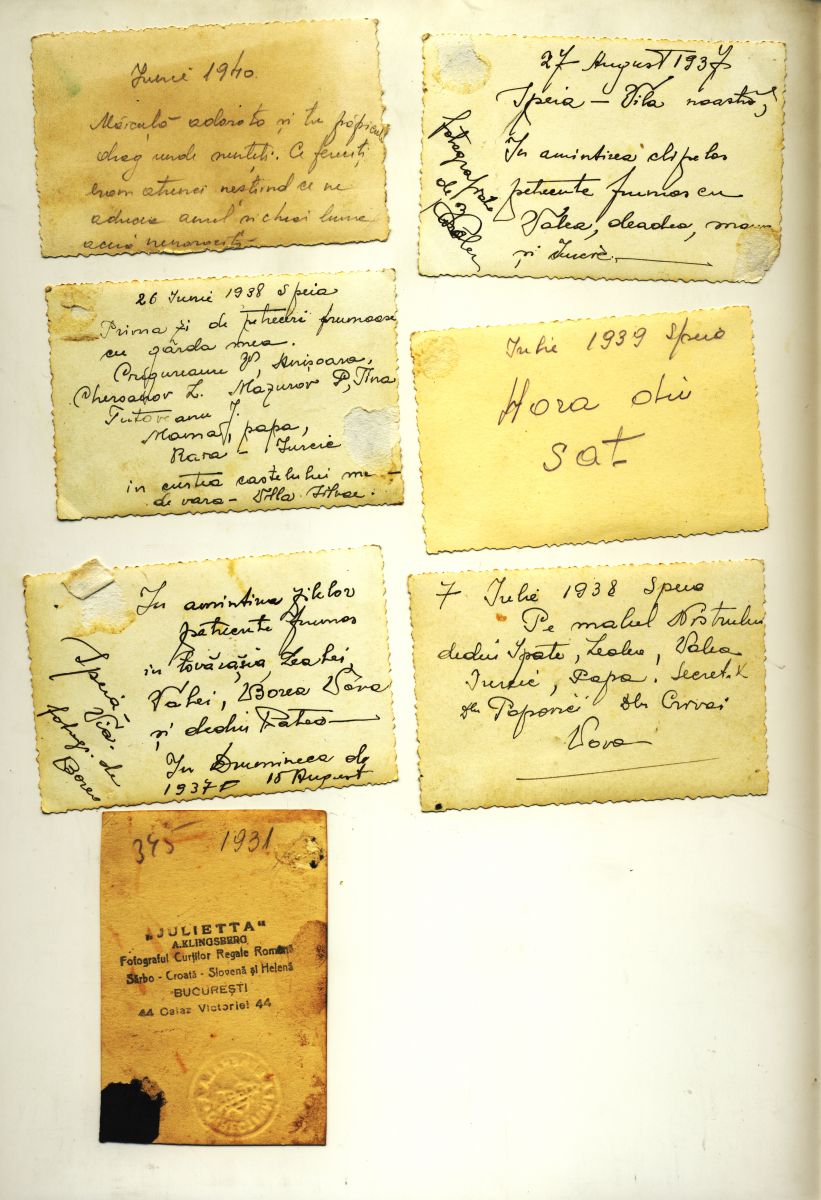 Iunie 1940.
Măicuță adorată și tu păpică
drag unde sunteți. Ce fericiți
eram atunci neștiind ce ne
aduce anul
27 August 1937
Speia – Vila noastră,
În amintirea clipelor
petrecute frumos cu
Valea, deadea, mama
și Iurcic.
fotografiate
de
26 Iunie 1938 Speia
Prima zi de petreceri frumoase
cu gărda mea.
Anișoara,
Chersanov L. Mazurov P, Tina
Tutoveanu J.
Mama, papa,
Rara – Iurcic
in curtea castelului me-
de vara – Villa Silvae.
Iulie 1939 Speia
Hora din
sat
In amintirea zilelor
petrecute frumos
in tovărășia Lealei,
Valiei, Borea Vova
și dediu
In Dumineca de
1937 15 August
Speia –
Vila.
fotogr. de
Borea
7 Iulie 1938 Speia
Pe malul Nistrului
dediu Ipate, Lealea, Valea
Iurcic, Papa. Secret.
Dlu Popovici Dlu
Vova
345 1931
„JULIETTA“
A. KLINGSBERG
Fotograful Curților Regale Română
Sârbo - Croată - Slovenă și Helenă
BUCUREȘTI
44 Calea Victoriei 44